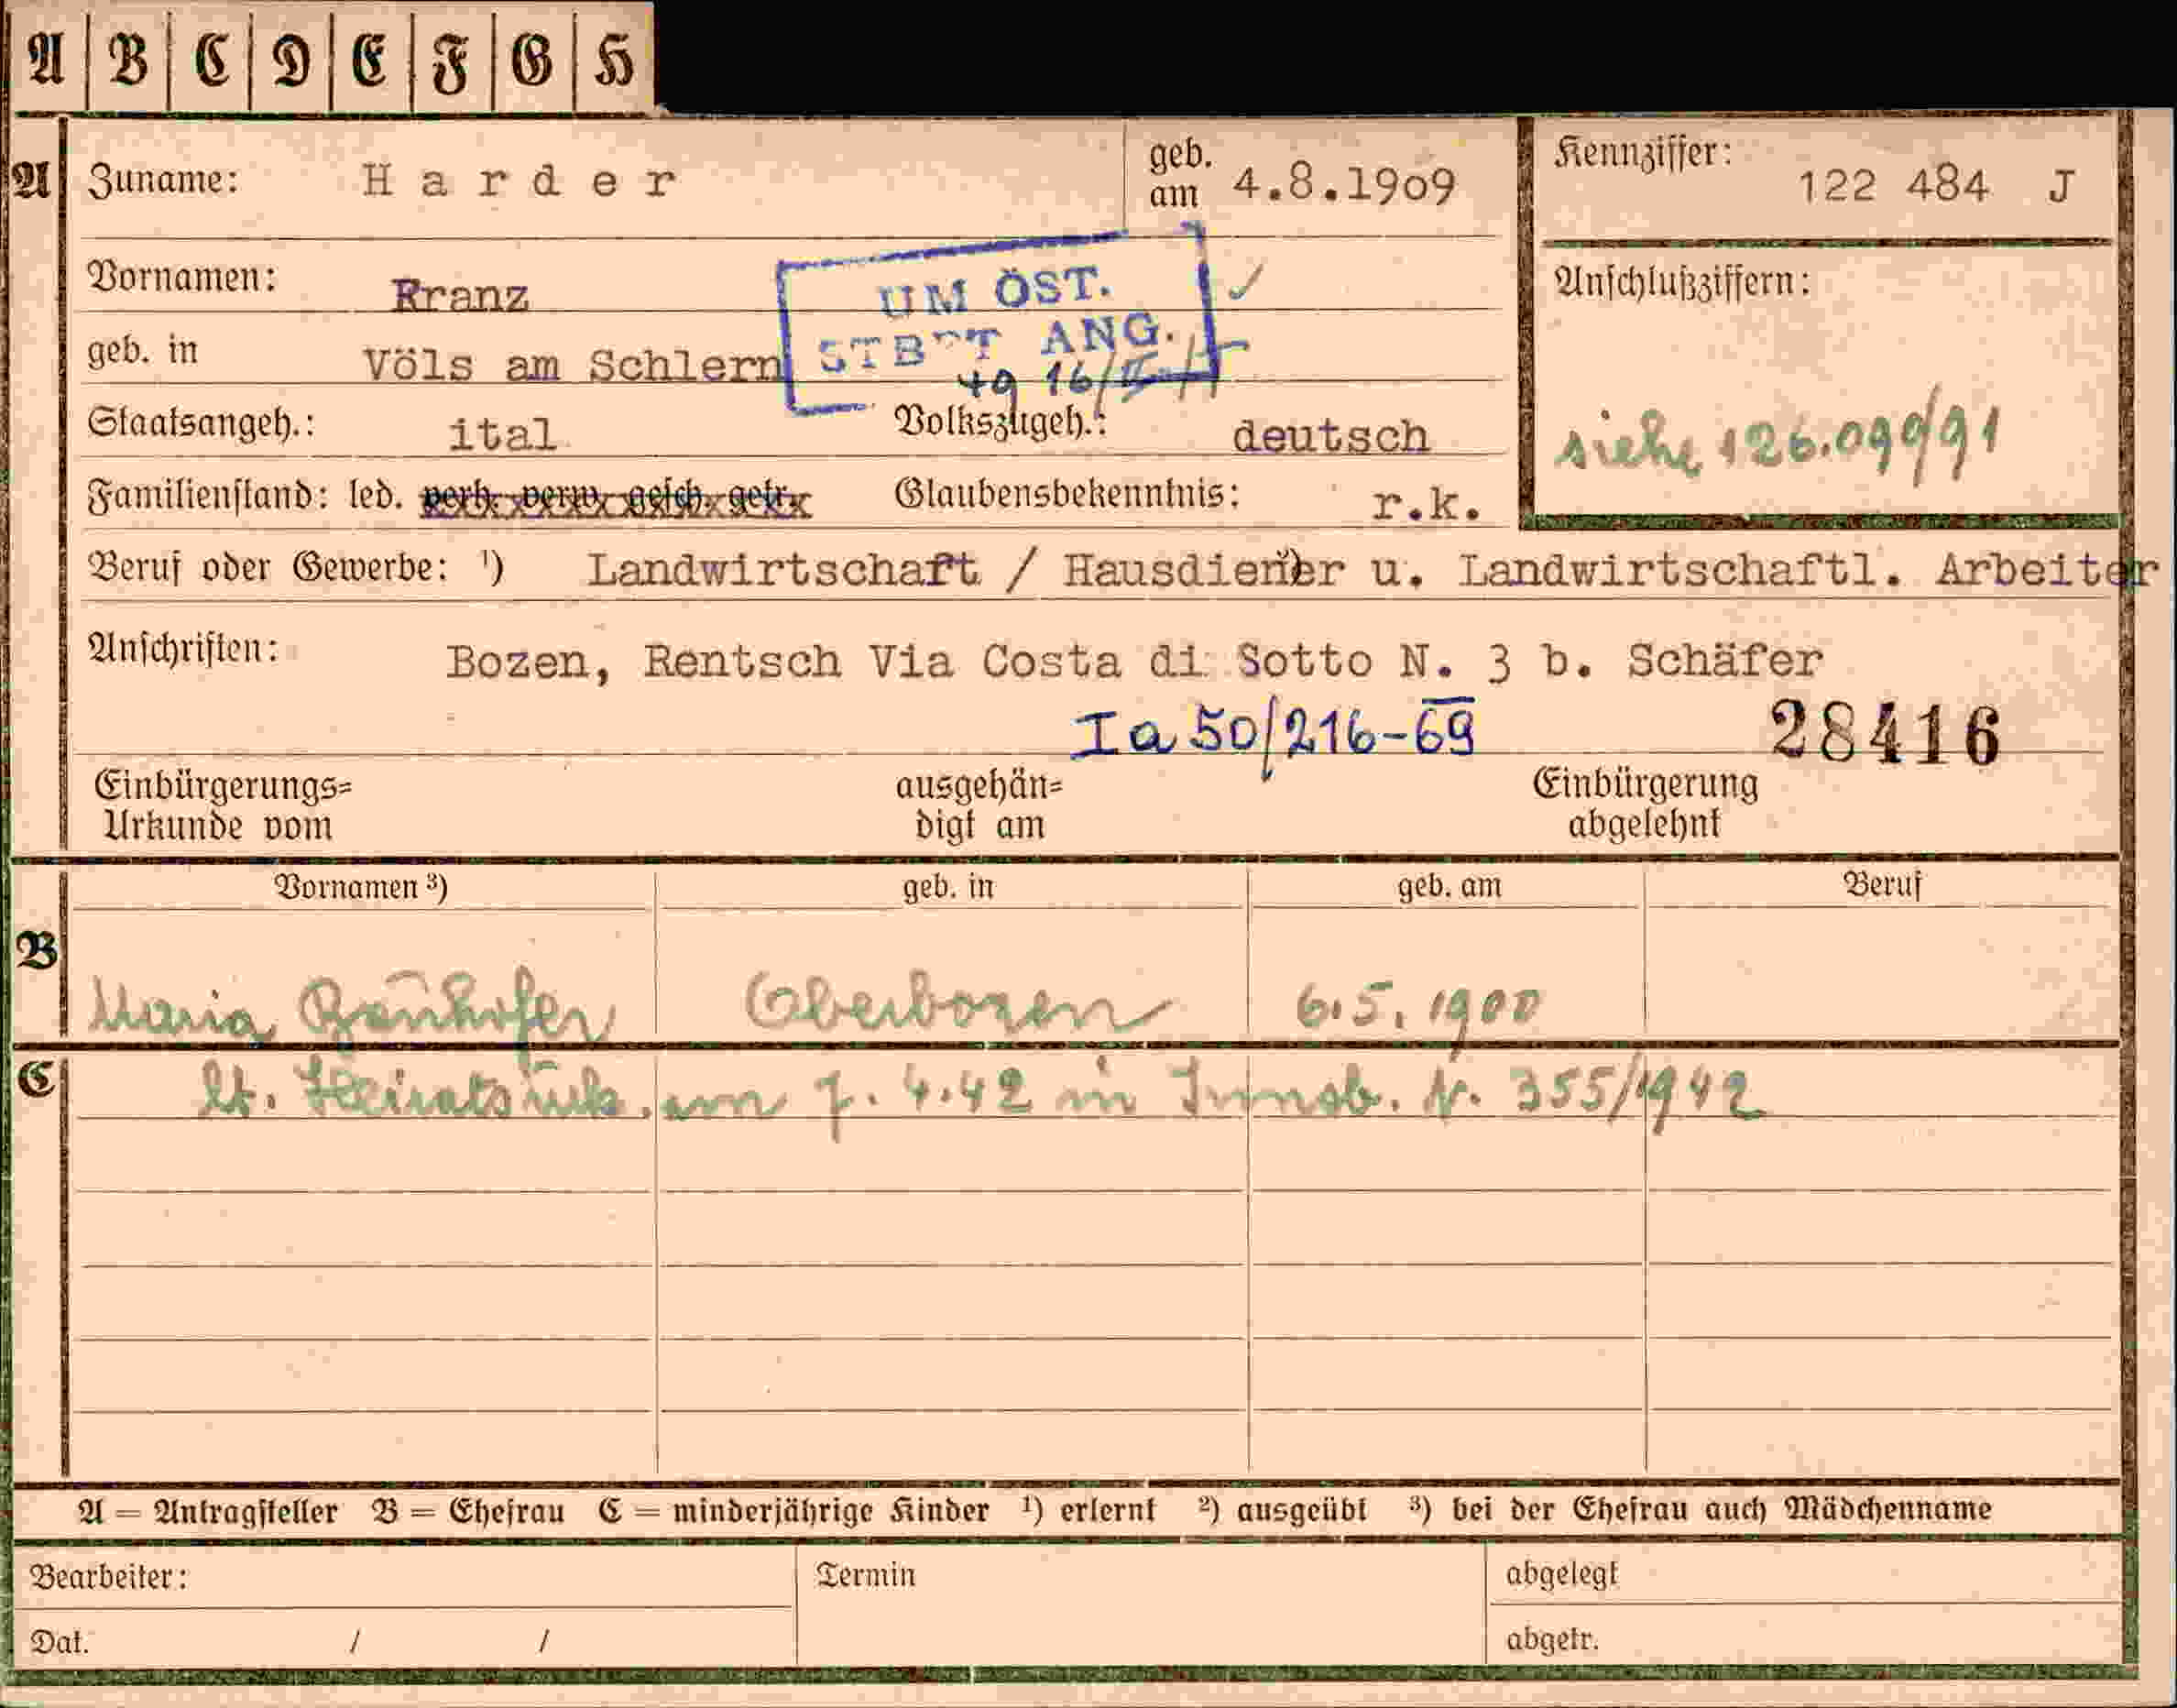 A B C D E F G H
A Zuname: Harder geb. am 4.8.1909 Kennziffer: 122 484 J
Vornamen: Franz
UM ÖST.
ANG.
Anschlußziffern:
geb. in Völs am Schlern
Staatsangeh.: ital Volkszugeh.: deutsch
siehe 126.099/91
Familienstand: led. verh. verw. gesch. getr. Glaubensbekenntnis: r.k.
Beruf oder Gewerbe: ¹) Landwirtschaft / Hausdiener u. Landwirtschaftl. Arbeiter
Anschriften: Bozen, Rentsch Via Costa di Sotto N. 3 b. Schäfer
Ia 50/216-69 28416
Einbürgerungs=
Urkunde vom
ausgehän=
digt am
Einbürgerung
abgelehnt
Vornamen ³) geb. in geb. am Beruf
B Maria Oberbozen 6.5.1900
C lt. Heiratsurk. am 7.4.42 in Innsb. N. 355/1942
A = Antragsteller B = Ehefrau C = minderjährige Kinder ¹) erlernt ²) ausgeübt ³) bei der Ehefrau auch Mädchenname
Bearbeiter: Termin abgelegt
Dat. / / abgetr.